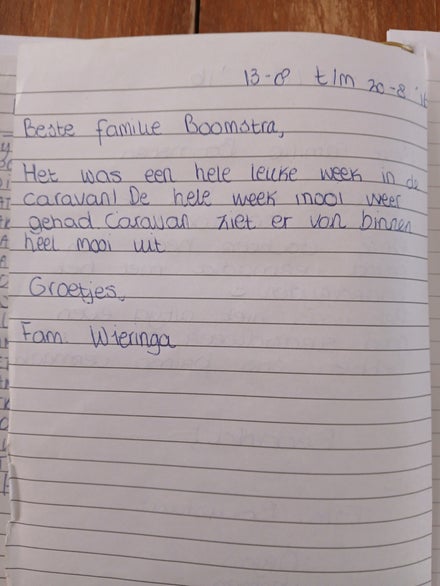 13-8 t/m 20-8 '16
Beste familie Boomstra,
Het was een hele leuke week in de
caravan! De hele week mooi weer
gehad. Caravan ziet er van binnen
heel mooi uit
Groetjes,
Fam. Wieringa